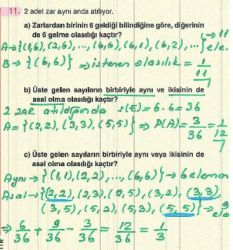 11. 2 adet zar aynı anda atılıyor.
a) Zarlardan birinin 6 geldiği bilindiğine göre, diğerinin
de 6 gelme olasılığı kaçtır? → 11
A → {(1,6), (2,6), ..., (6,6), (6,1), (6,2), ...} ele.
B → {(6,6)} → istenen olasılık = 1/11
b) Üste gelen sayıların birbiriyle aynı ve ikisinin de
asal olma olasılığı kaçtır?
2 zar atıldığında s(E) = 6.6 = 36
A = {(2,2), (3,3), (5,5)} → P(A) = 3/36 = 1/12
c) Üste gelen sayıların birbiriyle aynı veya ikisinin de
asal olma olasılığı kaçtır?
Aynı → {(1,1), (2,2), ..., (6,6)} → 6 eleman
Asal → {(2,2), (2,3), (2,5), (3,2), (3,3),
(3,5), (5,2), (5,3), (5,5)} → 9
→ 6/36 + 9/36 - 3/36 = 12/36 = 1/3